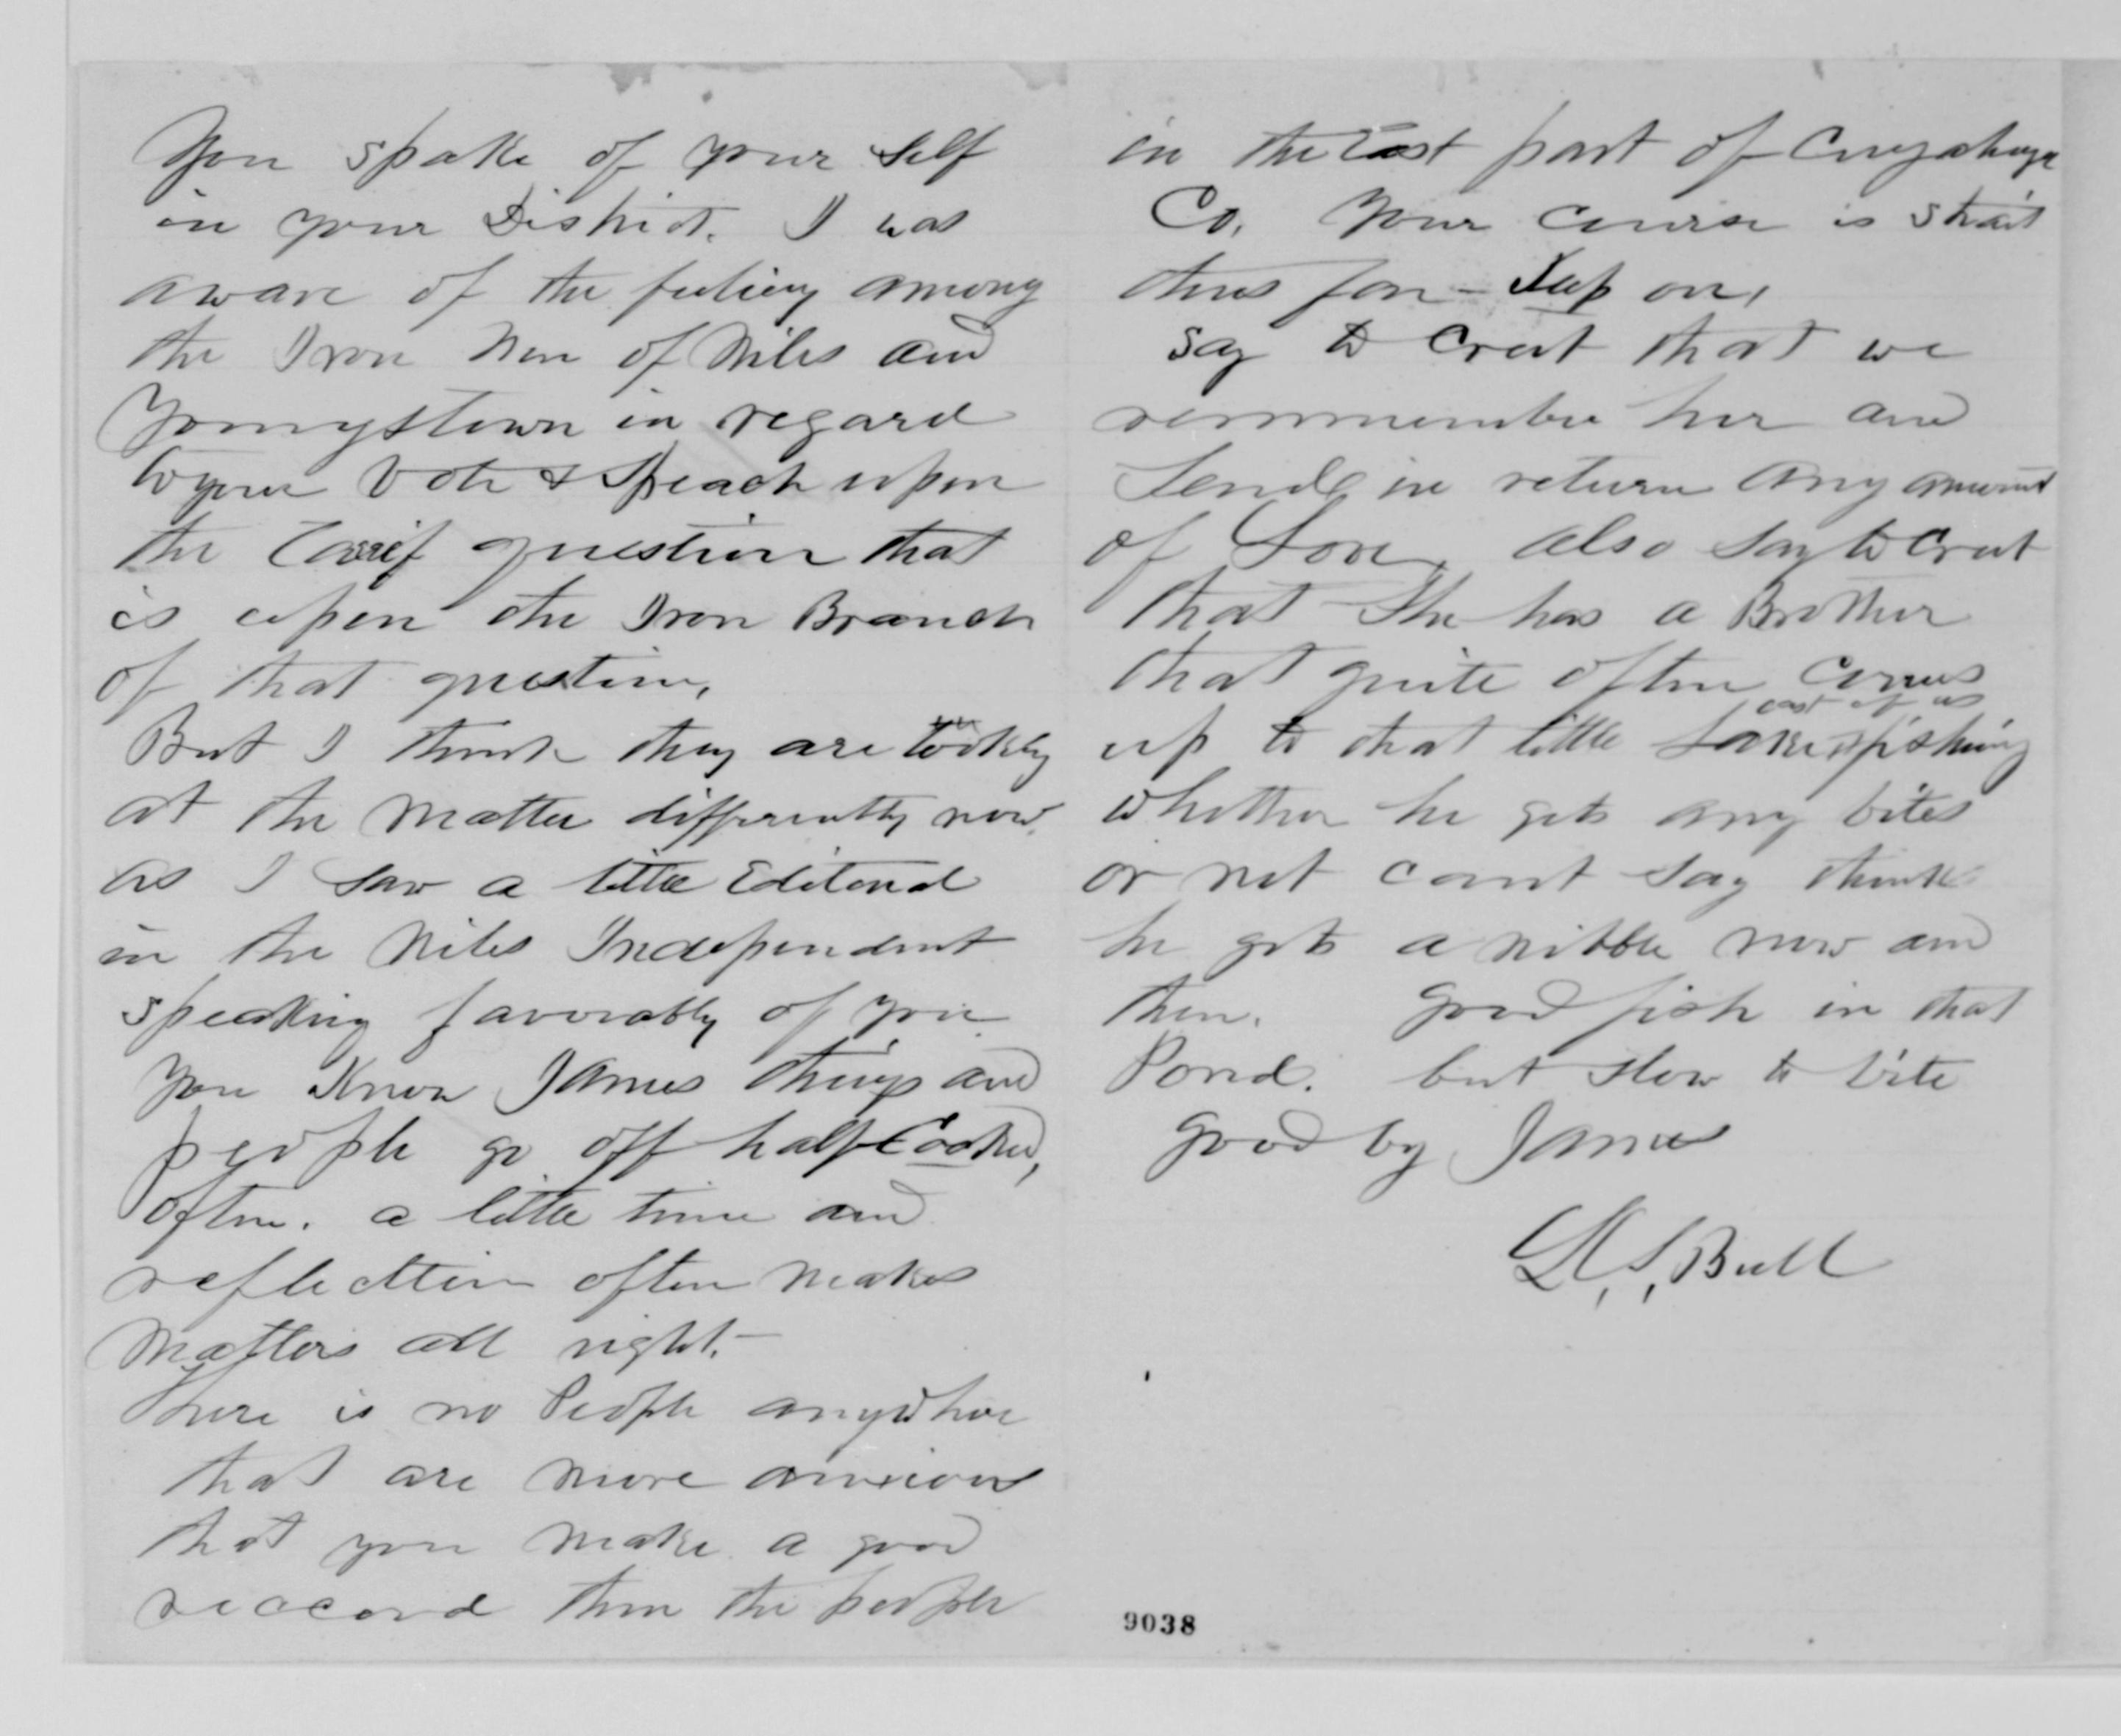 You spoke of your Self
in your District. I was
aware of the feeling among
the Iron Men of Niles and
Youngstown in regard
to your Vote & Speach upon
the Tarrif question that
is upon the Iron Branch
of that question,
But I think they are
at the matter differently now
as I saw a little Editorial
in the Niles Independent
speaking favorably of you
you Know James things and
people go off half Cocked,
often. a little time and
reflection often makes
Matters all right.—
There is no People anywhere
that are more anxious
that you make a good
reccord then the people
in the East part of Cuyahoga
Co. Your course is strait
thus far — Keep on,
Say to Creet that we
remmember her and
Send in return any amount
of Love, also say to Creet
that She has a Brother
that quite often comes
east of us
up to that little Lake fishing
whether he gets any bites
or not cant say think
he gets a nibble now and
then. Good fish in that
Pond. but slow to bite
Good by James
Bull
9038